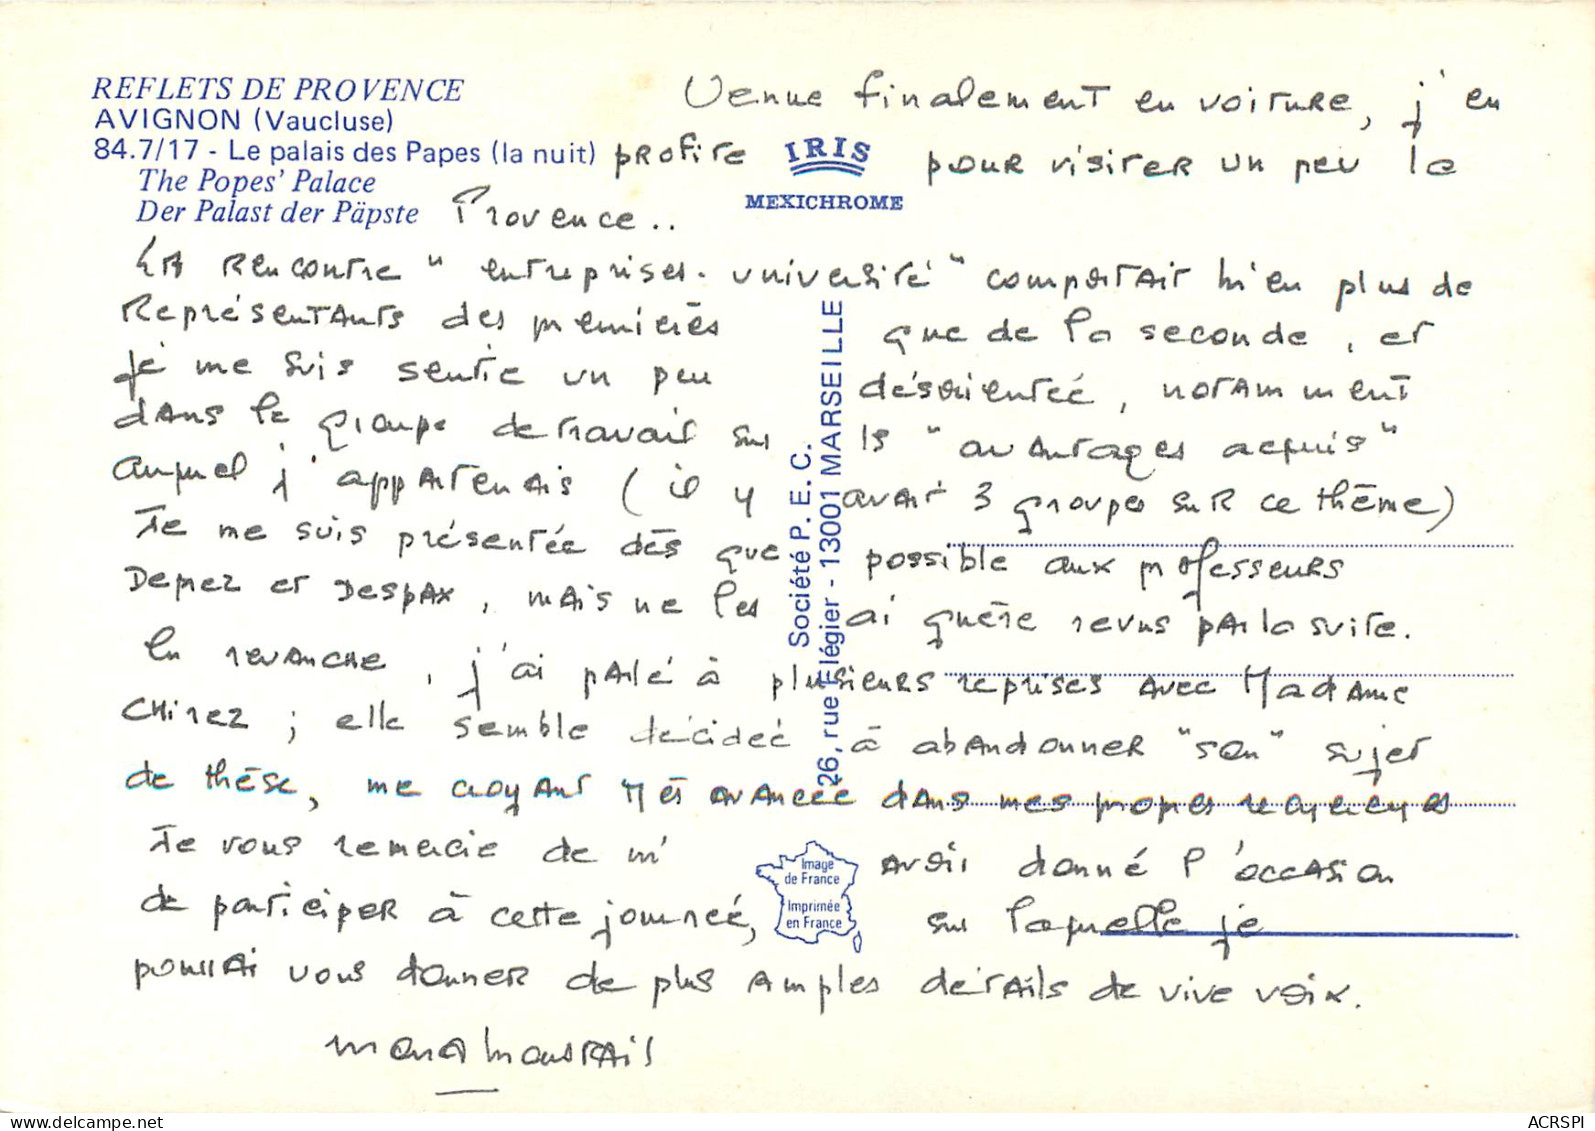 REFLETS DE PROVENCE
AVIGNON (Vaucluse)
84.7/17 - Le palais des Papes (la nuit)
The Popes' Palace
Der Palast der Päpste
IRIS
MEXICHROME
Venue finalement en voiture, j'en
profite pour visiter un peu la
Provence..
La rencontre "entreprises-université" comportait bien plus de
représentants des premières que de la seconde, et
je me suis sentie un peu désorientée, notamment
dans le groupe de travail sur ls "avantages acquis"
auquel j'appartenais (il y avait 3 groupes sur ce thème)
Je me suis présentée dès que possible aux professeurs
et Despax, mais ne les ai guère revus par la suite.
En revanche, j'ai parlé à plusieurs reprises avec Madame
; elle semble décidée à abandonner "son" sujet
de thèse, me croyant très avancée dans mes propres recherches
Je vous remercie de m'avoir donné l'occasion
de participer à cette journée, sur laquelle je
pourrai vous donner de plus amples détails de vive voix.
Société P. E. C.
26, rue Flégier - 13001 MARSEILLE
Image
de France
Imprimée
en France
ACRSPI